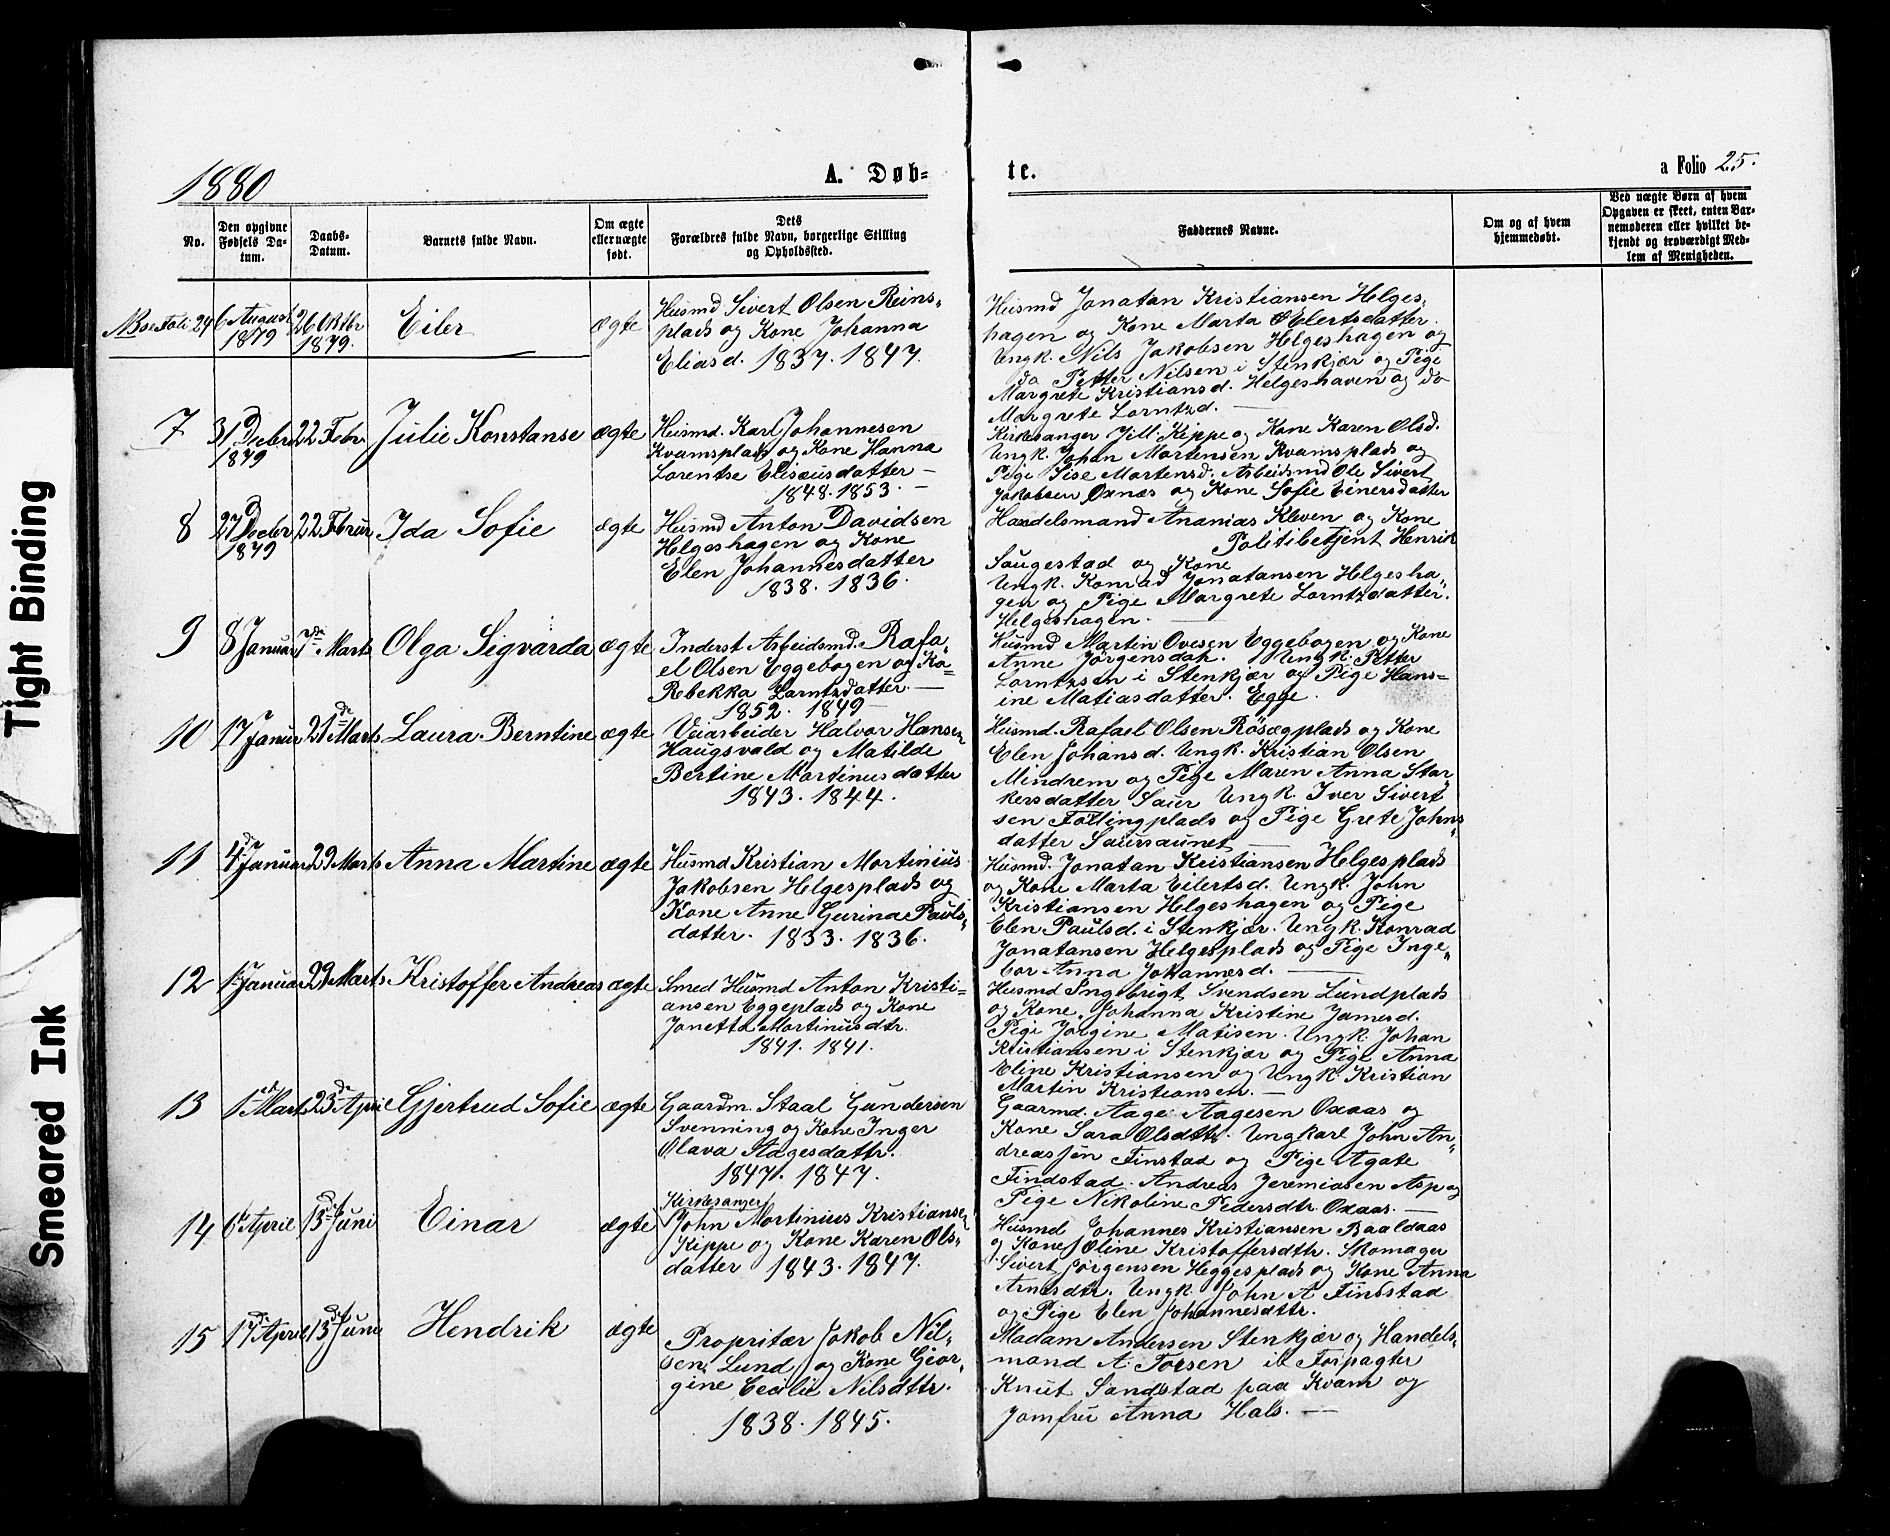 Tight Binding
Smeared Ink
1880
A. Døb-
te.
a Folio 25.
No.
Den opgivne
Fødsels Da-
tum.
Daabs-
Datum.
Barnets fulde Navn.
Om ægte
eller uægte
født.
Dets
Forældres fulde Navn, borgerlige Stilling
og Opholdssted.
Faddernes Navne.
Om og af hvem
hjemmedøbt.
Ved uægte Børn af hvem
Opgaven er skeet, enten Bar-
nemoderen eller hvilket be-
kjendt og troværdigt Med-
lem af Menigheden.
6 August
1879
26 Oktbr
1879.
Eiler
ægte
Husmd Sivert Olsen Reins-
plads og Kone Johanna
Eliasd. 1837. 1847.
Husmd Jonatan Kristiansen Helges-
hagen og Kone Marta Eilertsdatter.
Ungk. Nils Jakobsen Helgeshagen og
do Petter Nilsen i Stenkjær og Pige
Margrete Kristiansd. Helgeshaven og do
Margrete Lorntzd. —
7
31 Decbr
1879
22 Febr.
Julie Konstanse
ægte
Husmd. Karl Johannesen
Kvamsplads og Kone Hanna
Lorentse Elisæusdatter —
1848. 1853. —
Kirkesanger J. M. Kippe og Kone Karen Olsd.
Ungk. Johan Mortensen Kvamsplads og
Pige Sise Martensd. Arbeidsmd Ole Sivert
Jakobsen Oxnæs og Kone Sofie Einersdatter
8
27 Decbr
1879
22 Februr
Ida Sofie
ægte
Husmd Anton Davidsen
Helgeshagen og Kone
Elen Johannesdatter
1838. 1836.
Handelsmand Ananias Kleven og Kone
Politibetjent Henrik
Saugestad og Kone
Ungk. Konrad Jonatansen Helgesha-
gen og Pige Margrete Lorntzdatter.
Helgeshagen. —
9
8 Januar
7de Marts
Olga Sigvarda
ægte
Inderst Arbeidsmd. Rafa-
el Olsen Eggebogen og Ko-
Rebekka Larntzdatter —
1852. 1849 —
Husmd Martin Ovesen Eggebogen og Kone
Anne Jørgensdat. Ungk. Petter
Lorntzsen i Stenkjær og Pige Hans-
ine Matiasdatter. Egge.
10
17 Januar
21de Marts
Laura Berntine
ægte
Veiarbeider Halvor Hansen
Haugsvald og Matilde
Bertine Martinusdatter
1843. 1844.
Husmd. Rafael Olsen Rösegplads og Kone
Elen Johansd. Ungk. Kristian Olsen
Mindrem og Pige Maren Anna Star-
kersdatter Saur Ungk. Iver Sivert
sen Føllingplads og Pige Grete Johns-
datter Saursaunet —
11
4de Januar
29 Marts
Anna Martine
ægte
Husmd Kristian Mortinius
Jakobsen Helgesplads og
Kone Anne Gurina Pauls-
datter. 1833. 1836.
Husmd. Jonatan Kristiansen Helgesplads
og Kone Marta Eilertsd. Ungk. John
Kristiansen Helgeshagen og Pige
Elen Paulsd. i Stenkjær. Ungk. Konrad
Jonatansen Helgesplads og Pige Inge-
bor Anna Johannesd. —
12
1 Januar
29 Marts
Kristoffer Andreas
ægte
Smed Husmd Anton Kristi-
ansen Eggeplads og Kone
Jonetta Mortinusdtr.
1841. 1841.
Husmd Ingebrigt Svendsen Lundplads
og Kone Johanna Kristine Jamesd.
Pige Jorgine Matisen. Ungk. Johan
Kristiansen i Stenkjær og Pige Anna
Eline Kristiansen og Ungk. Kristian
Martin Kristiansen. —
13
1 Marts
23de April
Gjertrud Sofie
ægte
Gaardm. Staal Gundersen
Svenning og Kone Inger
Olava Aagesdattr.
1847. 1847.
Gaarmd. Aage Aagesen Oxaas og
Kone Sara Olsdttr. Ungkarl John An-
dreassøn Finstad og Pige Agate
Findstad. Andreas Jeremiasen Asp og
Pige Nikoline Pedersdtr Oxaas. —
14
6 Aprile
13d Juni
Einar
ægte
Kirkesanger
John Mortinius Kristiansen
Kippe og Kone Karen Ols-
datter 1843. 1847.
Husmd Johannes Kristiansen Baaldaas
og Kone Oline Kristoffersdtr. Skomager
Sivert Jørgensen Heggesplads og Kone Anna
Arnesdtr. Ungk. John A Findstad
og Pige Elen Johannesdttr.
15
17d April
13d Juni
Hendrik
ægte
Propritær Jakob Nil-
sen Lund og Kone Geor-
gine Cecilie Nilsdttr.
1838. 1845.
Madam Andersen Stenkjær og Handels-
mand A. Forsen ib Forpagter
Knut Sandstad paa Kvam og
Jomfru Anna Hals. —